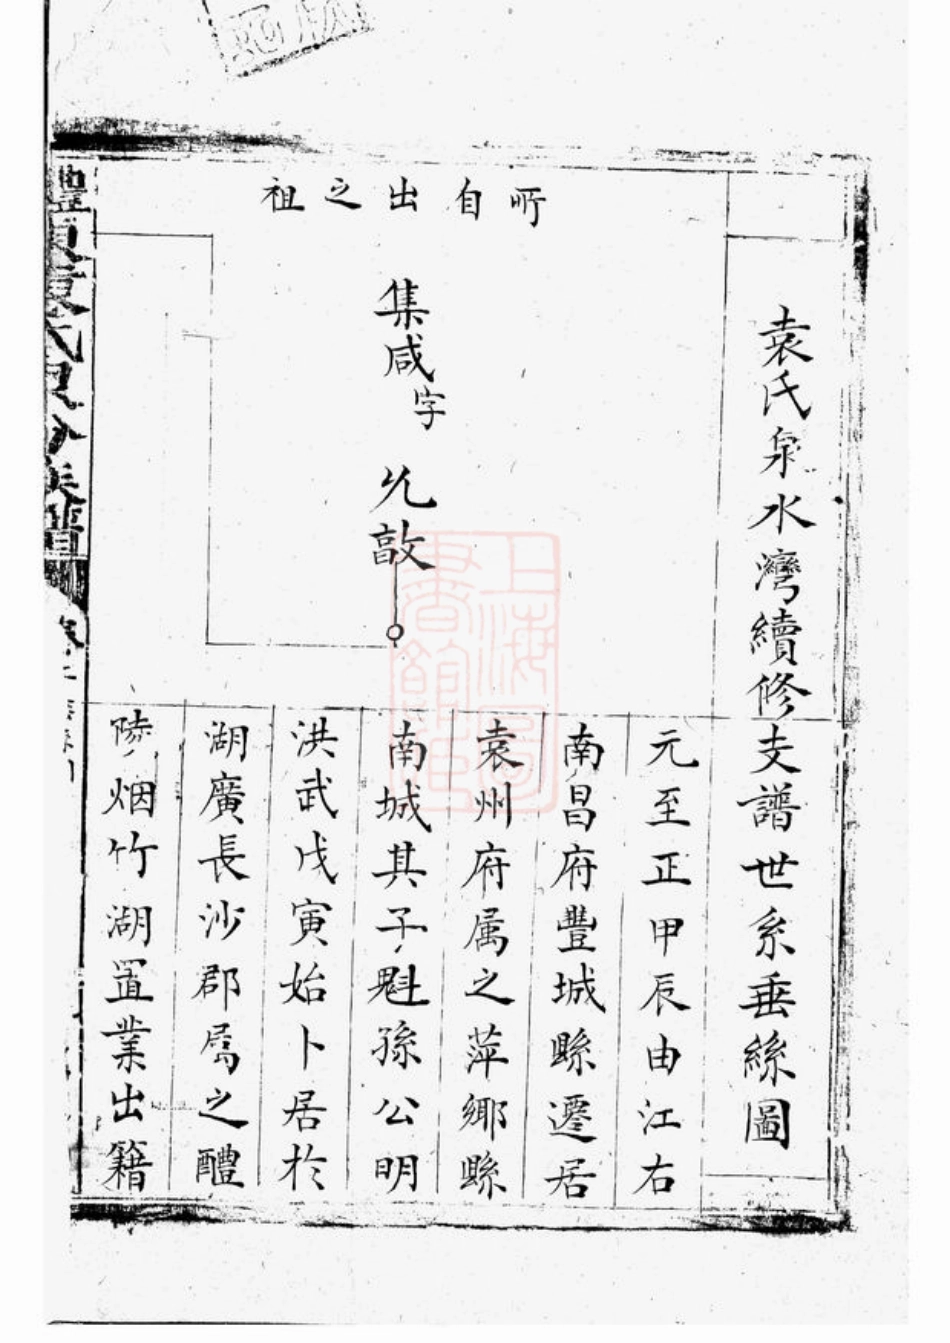 袁氏泉水灣續修支譜世系垂絲圖
所自出之祖
集咸字
允敵
元至正甲辰由江右
南昌府豐城縣遷居
袁州府属之萍鄉縣
南城其子魁孫公明
洪武戊寅始卜居於
湖廣長沙郡属之醴
陵烟竹湖置業出籍
上海圖書館藏